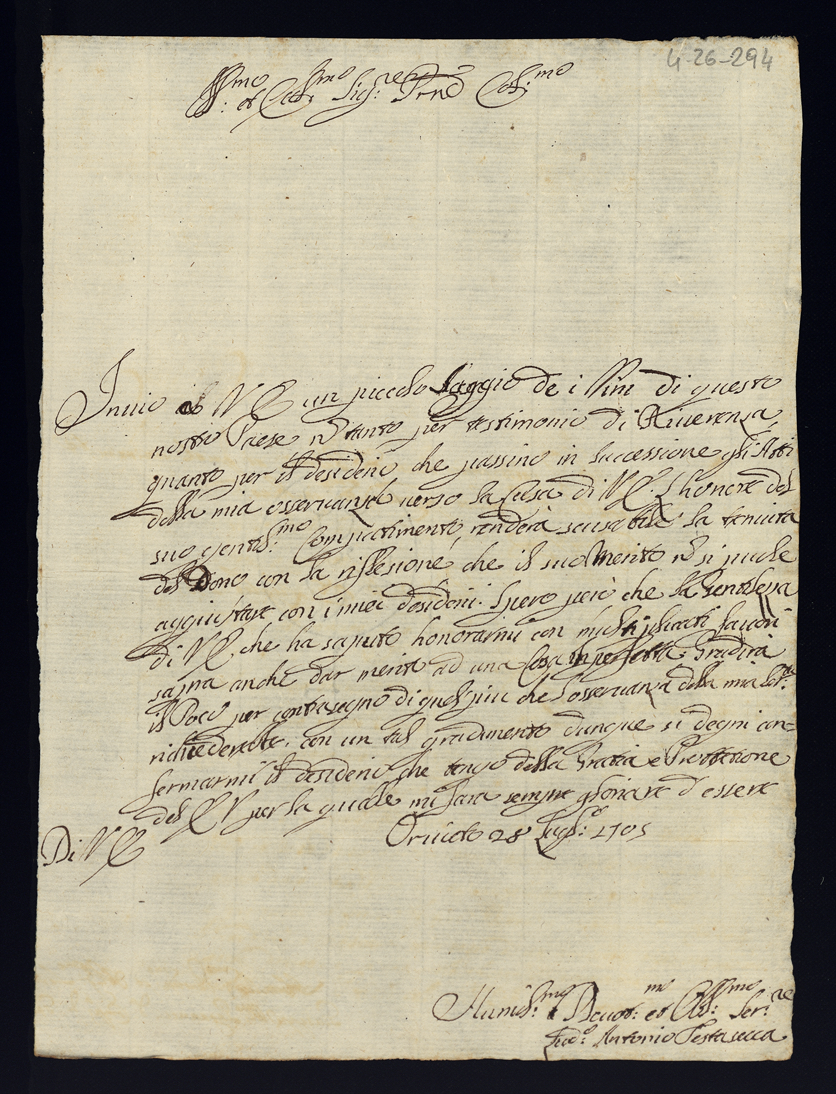 4-26-294
Ill.mo et Ecc.mo Sig.re Prne Col.mo
Invio a V E un piccolo saggio de i Vini di questo
nostro Paese nō tanto per testimonio di Riverenza,
quanto per il desiderio che passino in successione gli Atti
della mia osservanza verso la Casa di V E. L'honore del
suo gentil.mo Compatimento renderà scusabile la tenuità
del Dono con la riflessione, che il suo Merito nō si puole
aggiustare con i miei desideri. Spero però che la Gentilezza
di V E. che ha saputo honorarmi con multiplicati favori
sapra anche dar merito ad una Cosa imperfetta. Gradirà
il Poco per contrasegno di quel più che l'osservanza della mia Ser.tù
richiederebbe. con un tal gradimento dunque si degni con=
fermarmi il desiderio che tengo della Gratia e Protettione
del E V per la quale mi farà sempre gloriare d'essere
Di V E
Orvieto 28 Lugl.o 1705
Humil.mo Devot.mo et Obl.mo Ser.re
Lud.o Antonio Testasecca